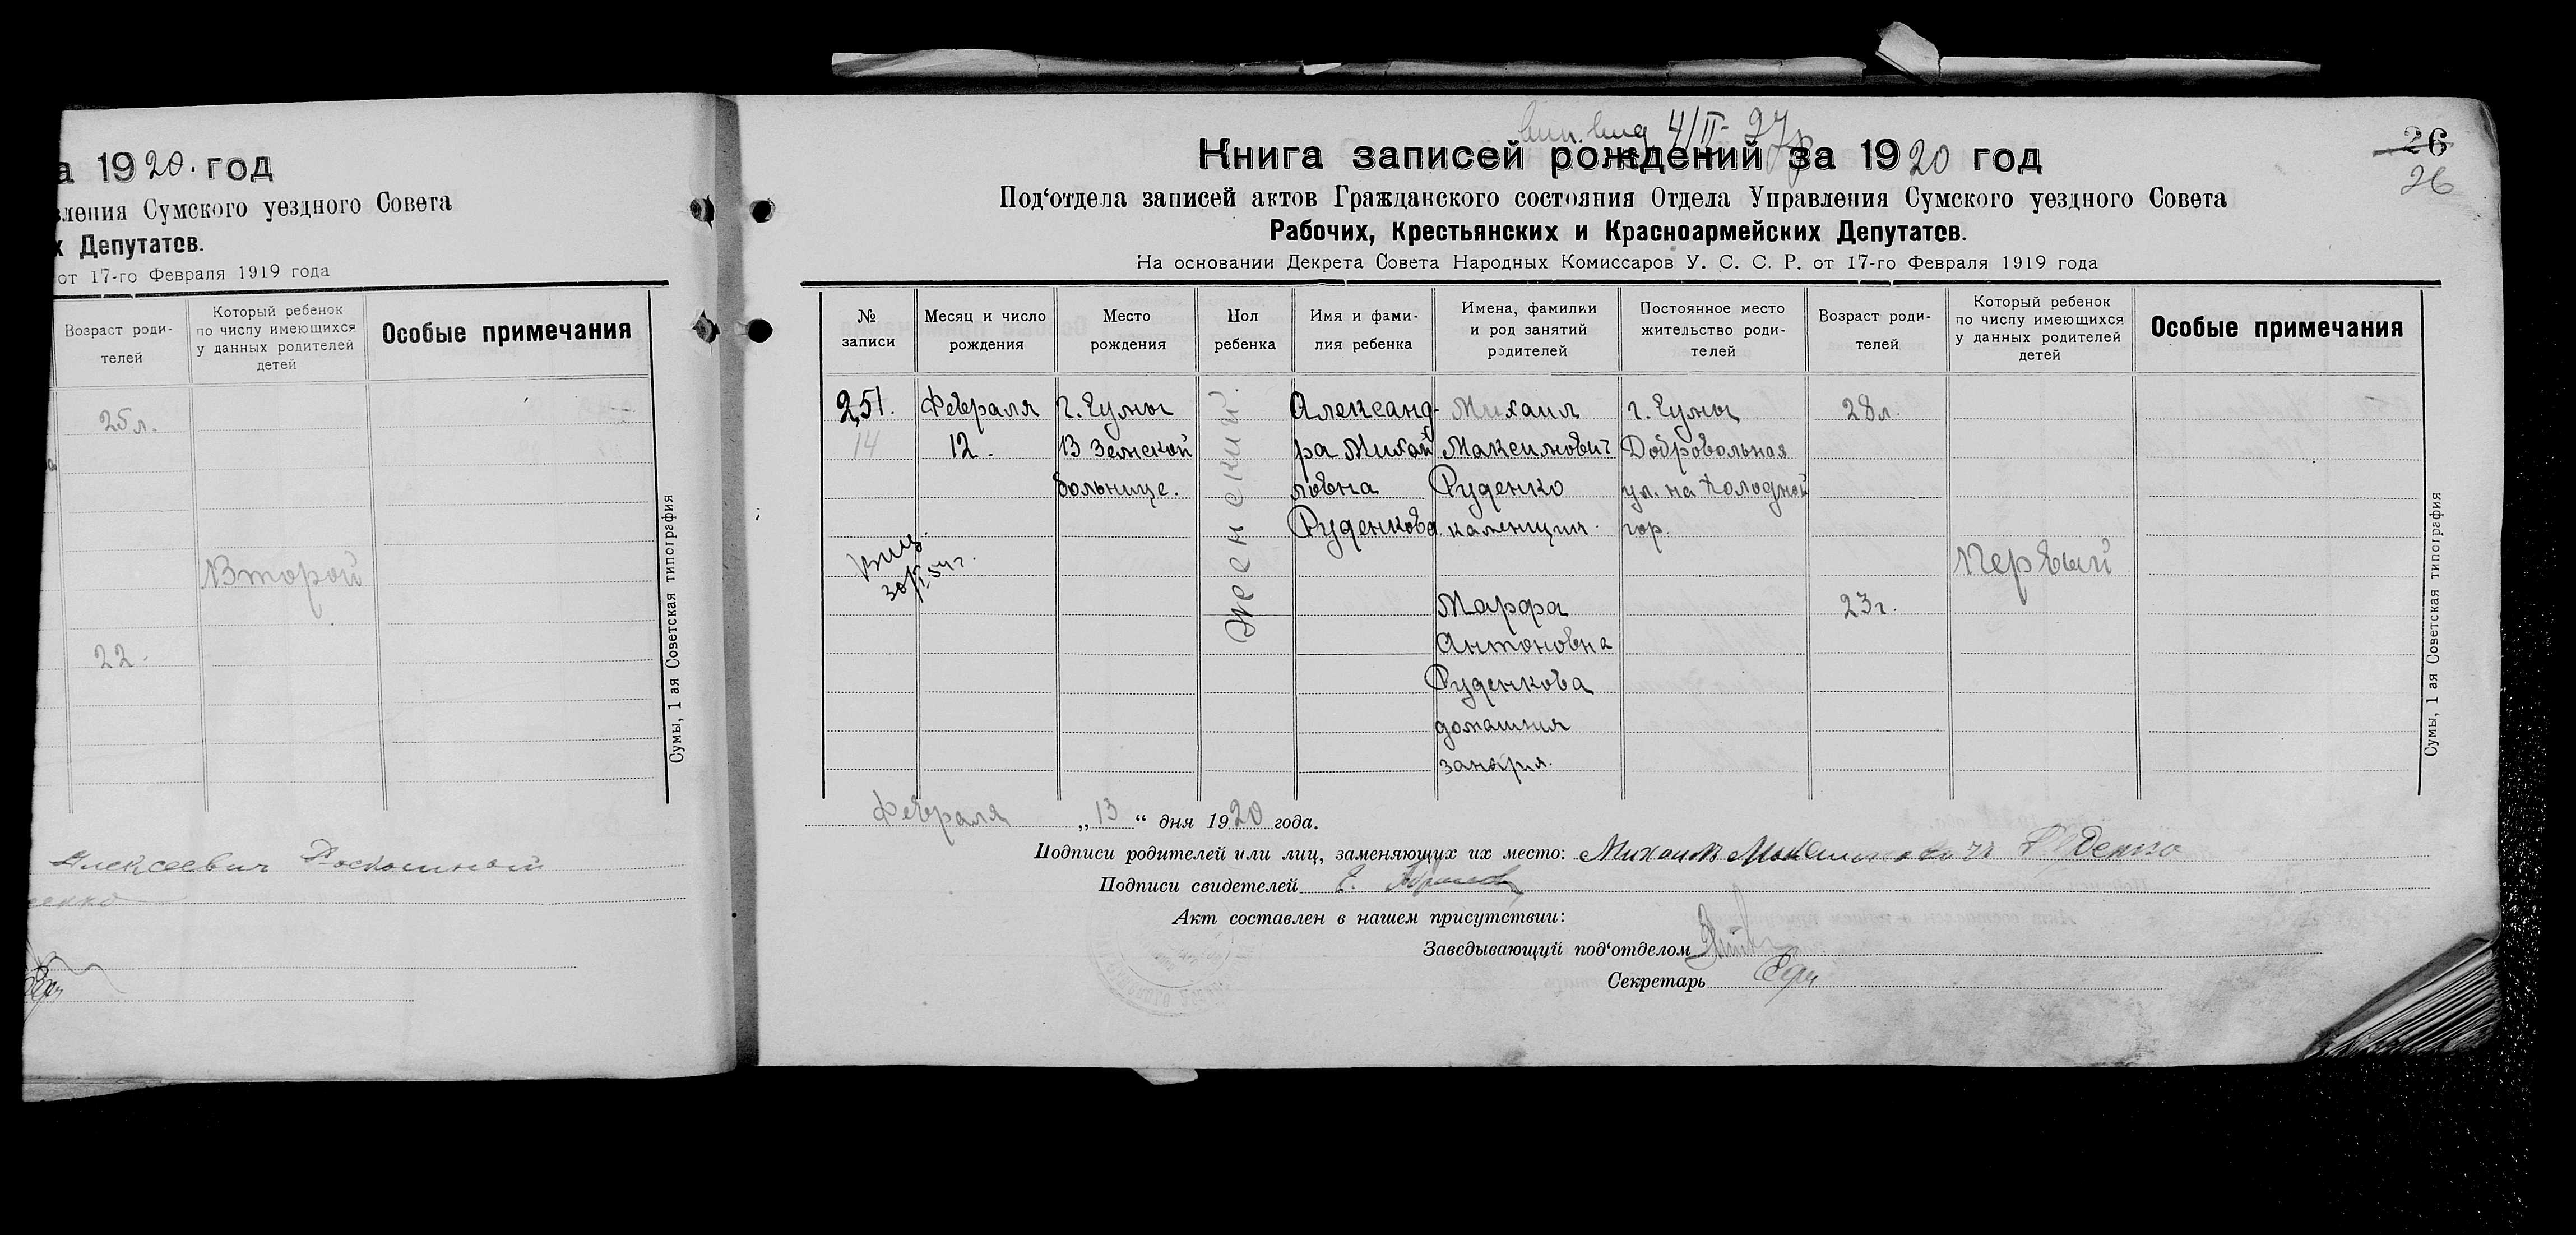 а 1920. год
вления Сумского уездного Совета
х Депутатов.
от 17-го Февраля 1919 года
Возраст роди-
телей
Который ребенок
по числу имеющихся
у данных родителей
детей
Особые примечания
25 л.
Второй
22.
Сумы, 1 ая Советская типография
Алексеевич
енко
4/II-27
Книга записей рождений за 1920 год
26
26
Под‘отдела записей актов Гражданского состояния Отдела Управления Сумского уездного Совета
Рабочих, Крестьянских и Красноармейских Депутатов.
На основании Декрета Совета Народных Комиссаров У. С. С. Р. от 17-го Февраля 1919 года
№
записи
Месяц и число
рождения
Место
рождения
Пол
ребенка
Имя и фами-
лия ребенка
Имена, фамилии
и род занятий
родителей
Постоянное место
жительство роди-
телей
Возраст роди-
телей
Который ребенок
по числу имеющихся
у данных родителей
детей
Особые примечания
251.
14
Февраля
12.
г. Сумы
В Земской
больнице.
Женский.
Александ-
ра Михай
ловна
Руденкова
Михаил
Максимович
Руденко
каменщик.
Марфа
Антоновна
Руденкова
домашния
занятия.
г. Сумы
Добровольная
ул. на Холодной
гор.
28 л.
23 г.
Первый
Сумы, 1 ая Советская типография
Февраля „13“ дня 1920 года.
Подписи родителей или лиц, заменяющих их место: Михаил Максимович Руденко
Подписи свидетелей
Акт составлен в нашем присутствии:
Заведывающий под‘отделом
Секретарь